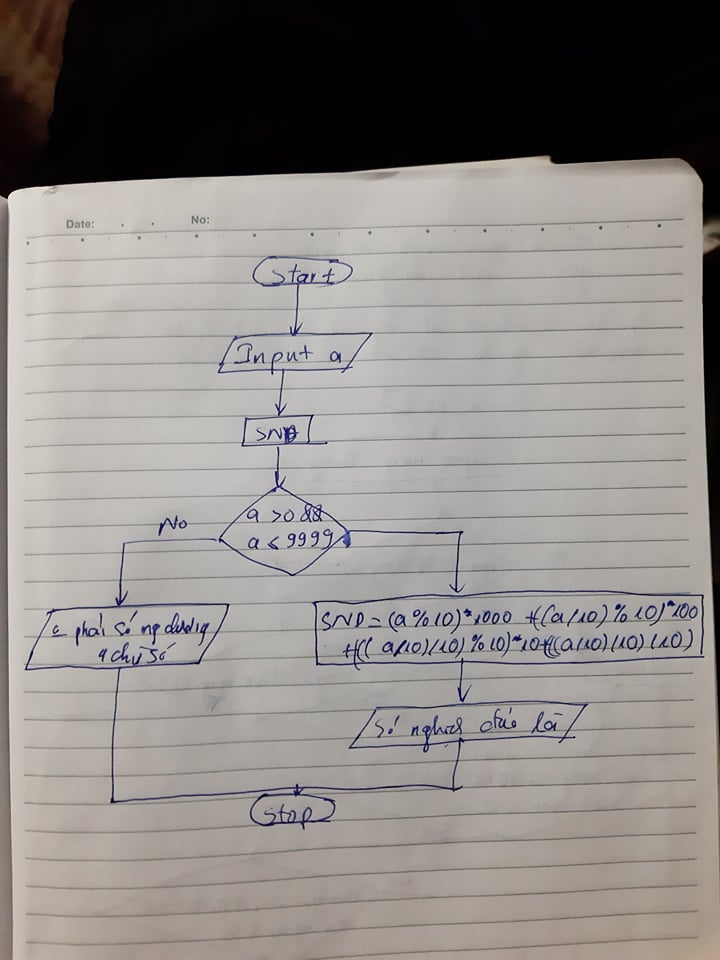 Date: . . No:
Start
Input a
SNĐ
a >0 &&
a ≤ 9999
No
a phải số ng dương
4 chữ số
SNĐ = (a%10)*1000 +((a/10)%10)*100
+(((a/10)/10)%10)*10+(((a/10)/10)/10)
Số nghịch đảo là
Stop